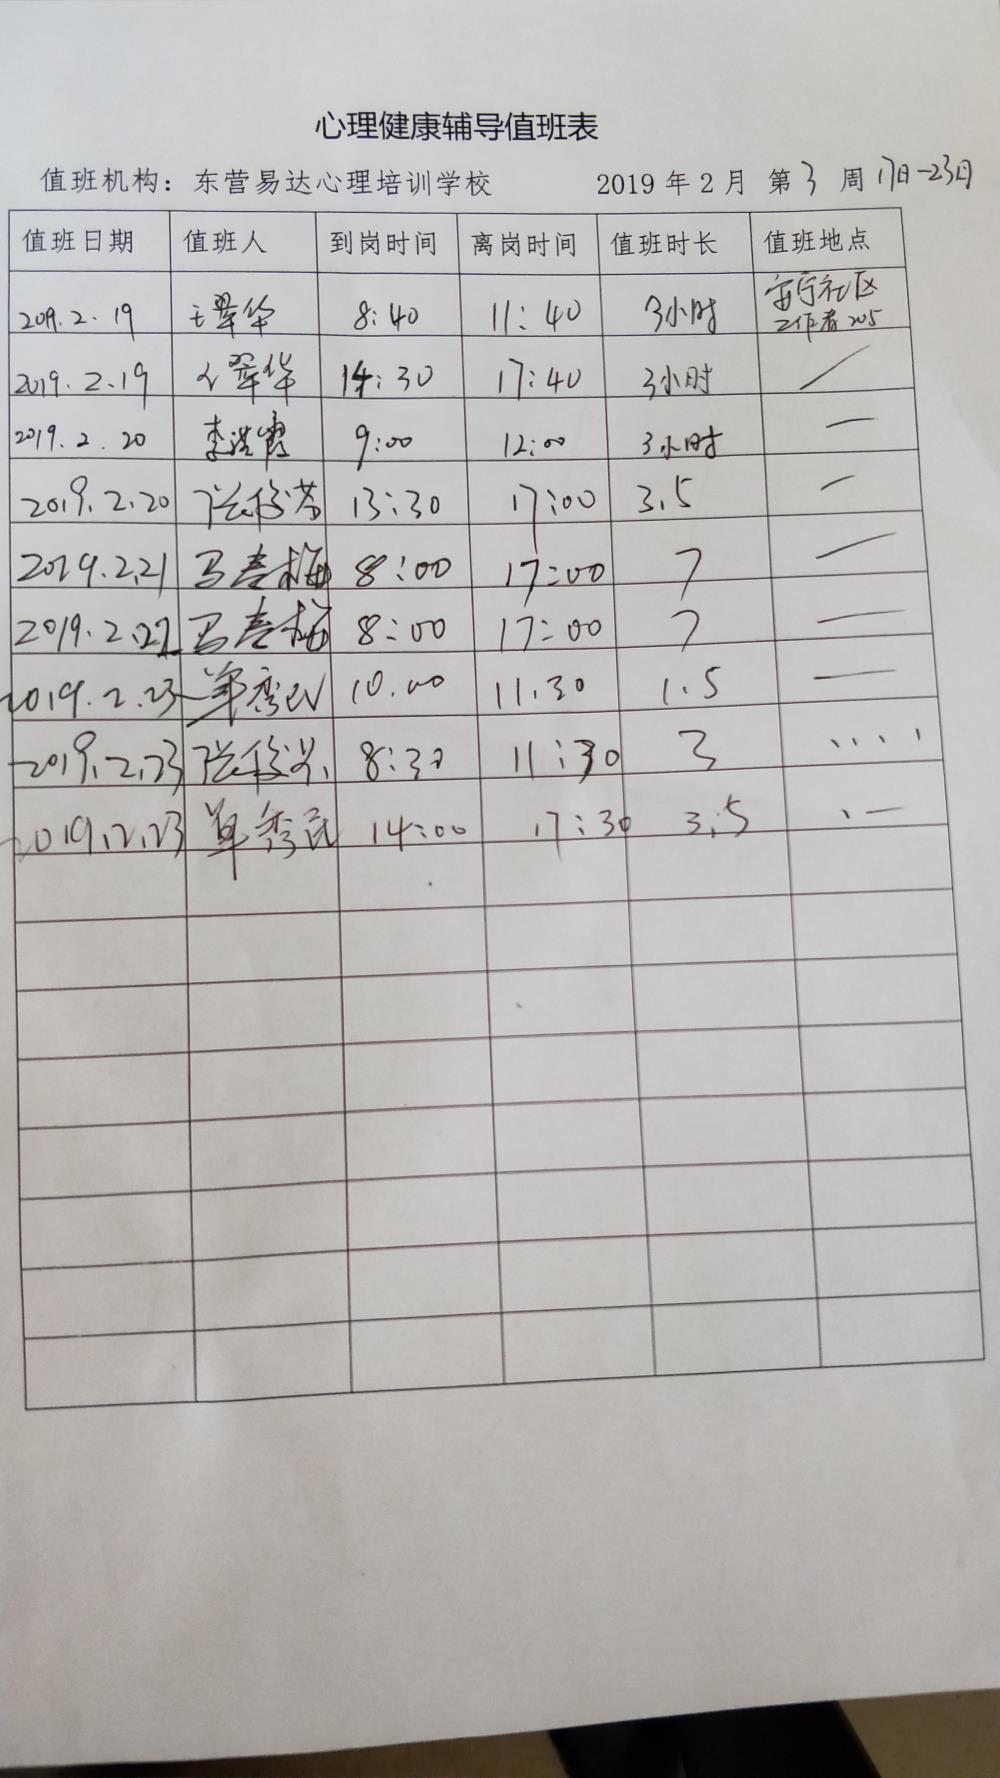 心理健康辅导值班表
值班机构：东营易达心理培训学校 2019年2月 第3周 17日-23日
值班日期 值班人 到岗时间 离岗时间 值班时长 值班地点
209.2.19 王翠华 8:40 11:40 3小时 安宁社区
工作者205
2019.2.19 翠华 14:30 17:40 3小时
2019.2.20 李洪霞 9:00 12:00 3小时 一
2019.2.20 13:30 17:00 3.5 一
2019.2.21 马春梅 8:00 17:00 7 一
2019.2.22 马春梅 8:00 17:00 7 一
2019.2.23 单秀民 10.00 11.30 1.5 一
2019.2.23 8:30 11:30 3
2019.2.23 单秀民 14:00 17:30 3.5